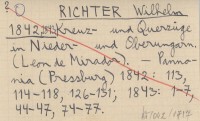 2
RICHTER Wilhelm
1842 Kreuz- und Querzüge
in Nieder- und Oberungarn.
(Leon de Mirador). - Panno-
nia (Pressburg) 1842: 113,
114-118, 126-131; 1843: 1-7,
44-47, 74-77.